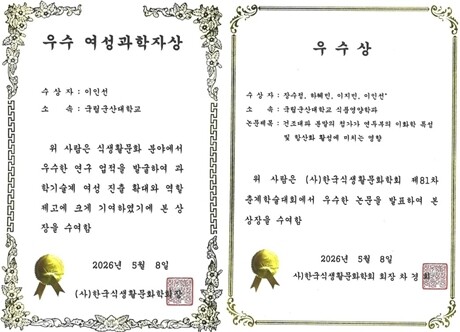 우수 여성과학자상
수 상 자 : 이인선
소 속 : 국립군산대학교
위 사람은 식생활문화 분야에서
우수한 연구 업적을 발굴하여 과
학기술계 여성 진출 확대와 역할
제고에 크게 기여하였기에 본 상
장을 수여함
2026년 5월 8일
(사)한국식생활문화학회장
우 수 상
수 상 자 : 장수정, 하혜민, 이지민, 이인선*
소 속 : 국립군산대학교 식품영양학과
논문제목 : 건조대파 분말의 첨가가 연두부의 이화학 특성
및 항산화 활성에 미치는 영향
위 사람은 (사)한국식생활문화학회 제81차
춘계학술대회에서 우수한 논문을 발표하여 본
상장을 수여함
2026년 5월 8일
사)한국식생활문화학회 회장 차 경 희